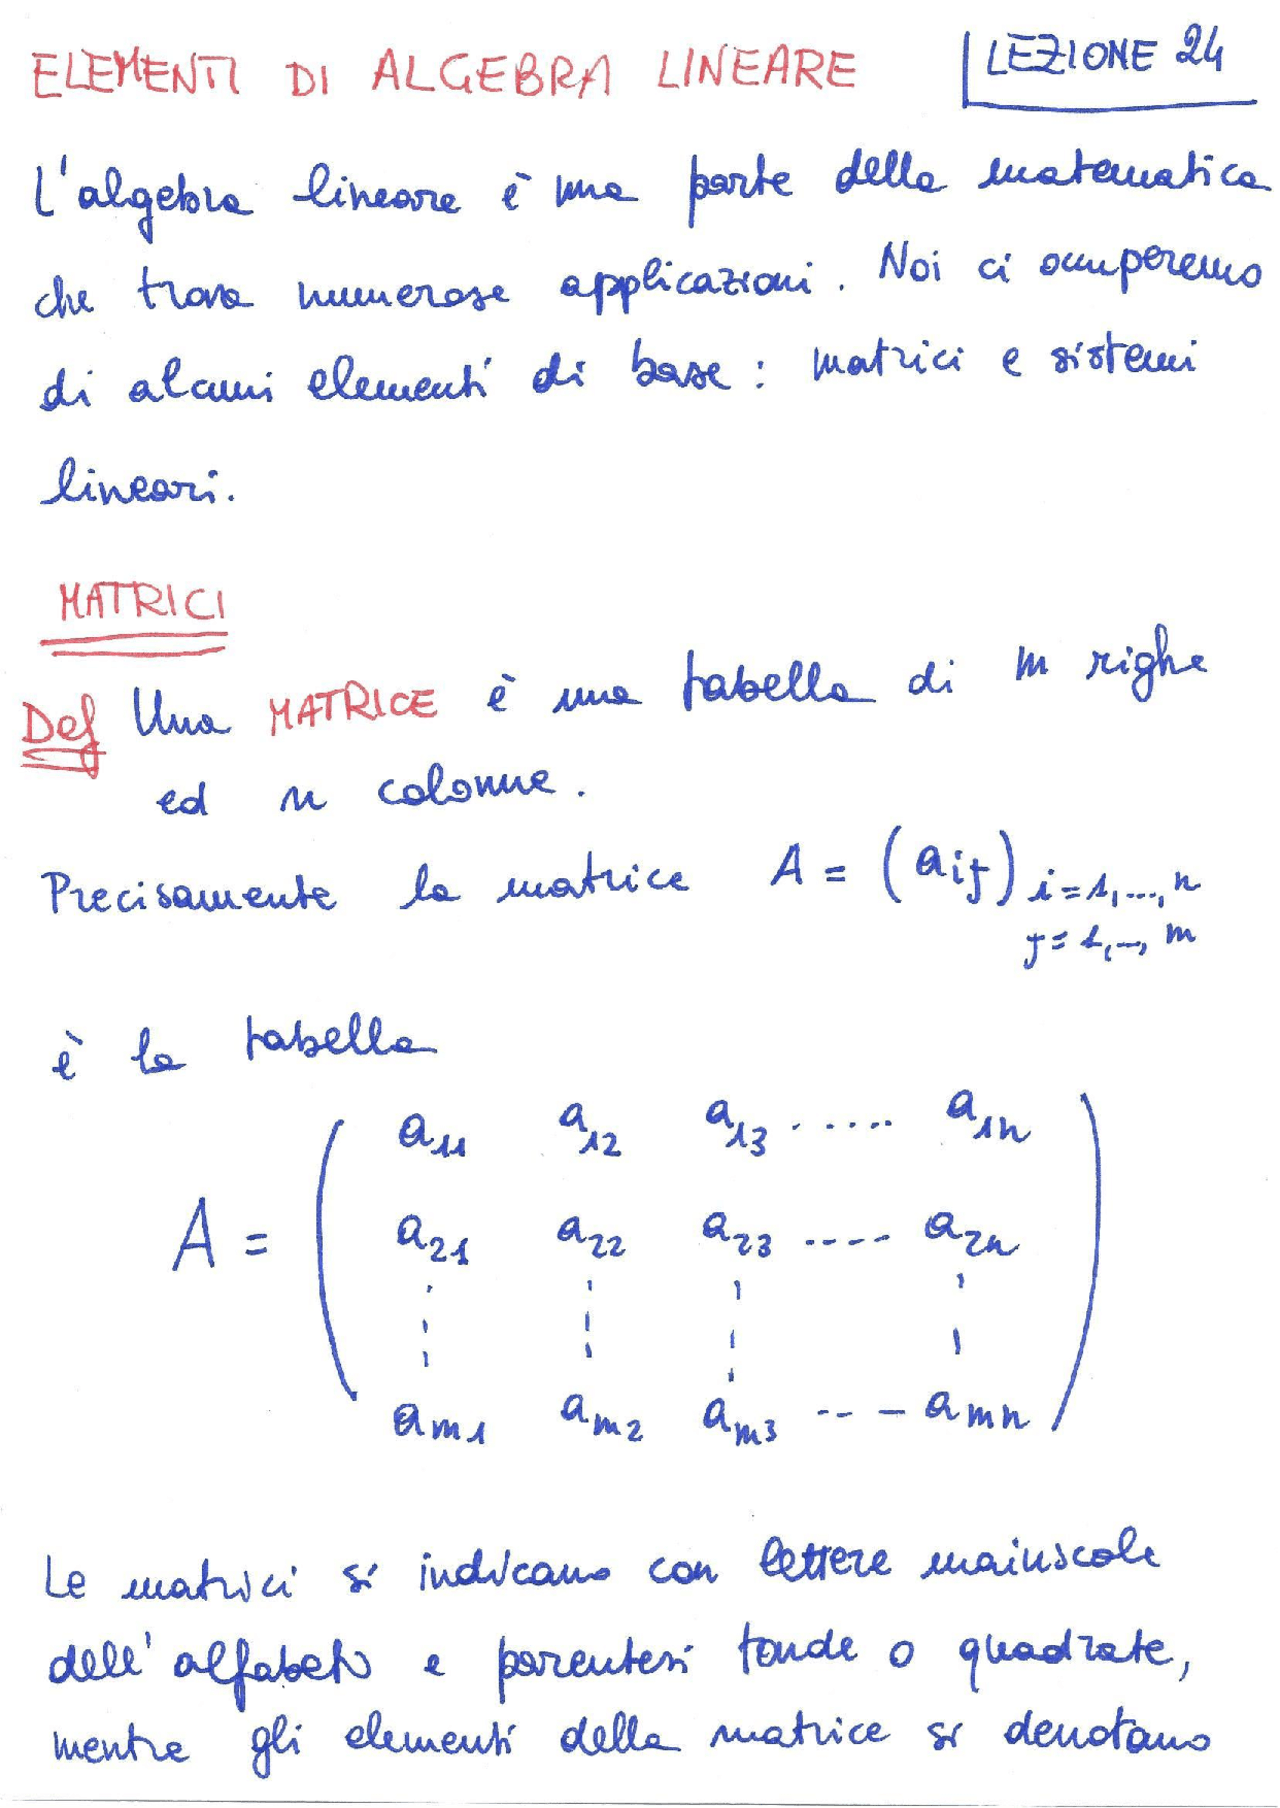 ELEMENTI DI ALGEBRA LINEARE
LEZIONE 24
L'algebra lineare è una parte della matematica
che trova numerose applicazioni. Noi ci occuperemo
di alcuni elementi di base: matrici e sistemi
lineari.
MATRICI
Def Una MATRICE è una tabella di m righe
ed n colonne.
Precisamente la matrice A = (aij) i=1,...,n
j=1,..,m
è la tabella
a11 a12 a13 ..... a1n
A = a21 a22 a23 ---- a2n
am1 am2 am3 --- amn
Le matrici si indicano con lettere maiuscole
dell'alfabeto e parentesi tonde o quadrate,
mentre gli elementi della matrice si denotano